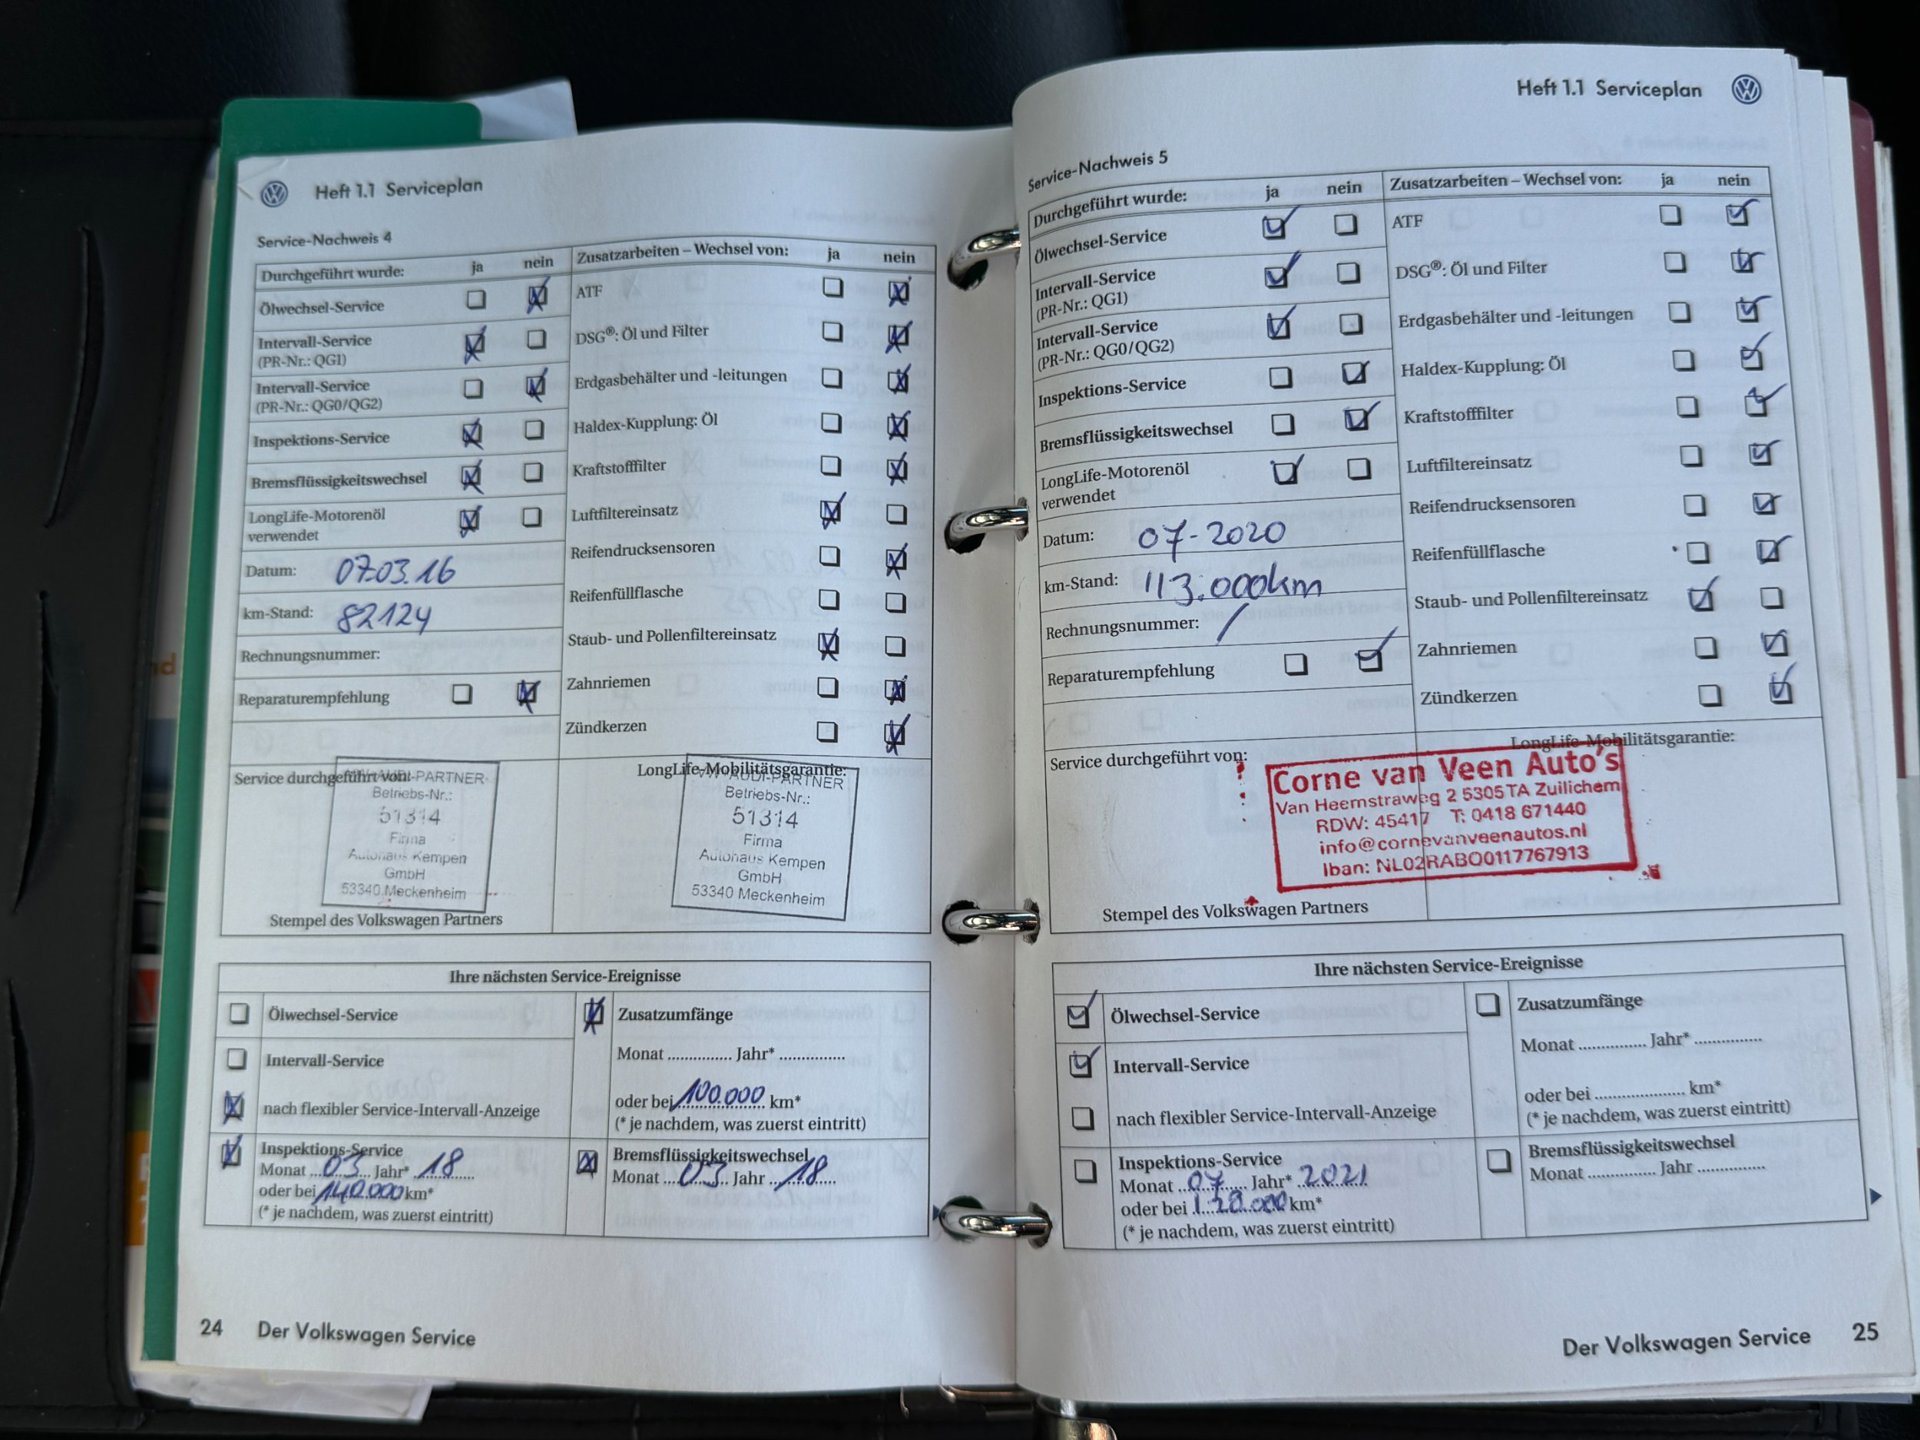 Heft 1.1 Serviceplan
Service-Nachweis 4
Durchgeführt wurde: ja nein
Ölwechsel-Service
Intervall-Service
(PR-Nr.: QG1)
Intervall-Service
(PR-Nr.: QG0/QG2)
Inspektions-Service
Bremsflüssigkeitswechsel
LongLife-Motorenöl
verwendet
Datum: 07.03.16
km-Stand: 82124
Rechnungsnummer:
Reparaturempfehlung
Zusatzarbeiten – Wechsel von: ja nein
ATF
DSG®: Öl und Filter
Erdgasbehälter und -leitungen
Haldex-Kupplung: Öl
Kraftstofffilter
Luftfiltereinsatz
Reifendrucksensoren
Reifenfüllflasche
Staub- und Pollenfiltereinsatz
Zahnriemen
Zündkerzen
Service durchgeführt von:
AUDI-PARTNER
Betriebs-Nr.:
51314
Firma
Autohaus Kempen
GmbH
53340 Meckenheim
Stempel des Volkswagen Partners
LongLife-Mobilitätsgarantie:
AUDI-PARTNER
Betriebs-Nr.:
51314
Firma
Autohaus Kempen
GmbH
53340 Meckenheim
Ihre nächsten Service-Ereignisse
Ölwechsel-Service
Intervall-Service
nach flexibler Service-Intervall-Anzeige
Inspektions-Service
Monat 03 Jahr* 18
oder bei 140.000 km*
(* je nachdem, was zuerst eintritt)
Zusatzumfänge
Monat .............. Jahr* ..............
oder bei 100.000 km*
(* je nachdem, was zuerst eintritt)
Bremsflüssigkeitswechsel
Monat 03 Jahr 18
24 Der Volkswagen Service
Heft 1.1 Serviceplan
Service-Nachweis 5
Durchgeführt wurde: ja nein
Ölwechsel-Service
Intervall-Service
(PR-Nr.: QG1)
Intervall-Service
(PR-Nr.: QG0/QG2)
Inspektions-Service
Bremsflüssigkeitswechsel
LongLife-Motorenöl
verwendet
Datum: 07-2020
km-Stand: 113.000km
Rechnungsnummer: /
Reparaturempfehlung
Zusatzarbeiten – Wechsel von: ja nein
ATF
DSG®: Öl und Filter
Erdgasbehälter und -leitungen
Haldex-Kupplung: Öl
Kraftstofffilter
Luftfiltereinsatz
Reifendrucksensoren
Reifenfüllflasche
Staub- und Pollenfiltereinsatz
Zahnriemen
Zündkerzen
Service durchgeführt von:
LongLife-Mobilitätsgarantie:
Corne van Veen Auto's
Van Heemstraweg 2 5305 TA Zuilichem
RDW: 45417 T: 0418 671440
info@cornevanveenautos.nl
Iban: NL02RABO0117767913
Stempel des Volkswagen Partners
Ihre nächsten Service-Ereignisse
Ölwechsel-Service
Intervall-Service
nach flexibler Service-Intervall-Anzeige
Inspektions-Service
Monat 07 Jahr* 2021
oder bei 120.000 km*
(* je nachdem, was zuerst eintritt)
Zusatzumfänge
Monat .............. Jahr* ..............
oder bei .................... km*
(* je nachdem, was zuerst eintritt)
Bremsflüssigkeitswechsel
Monat .............. Jahr ..............
Der Volkswagen Service 25